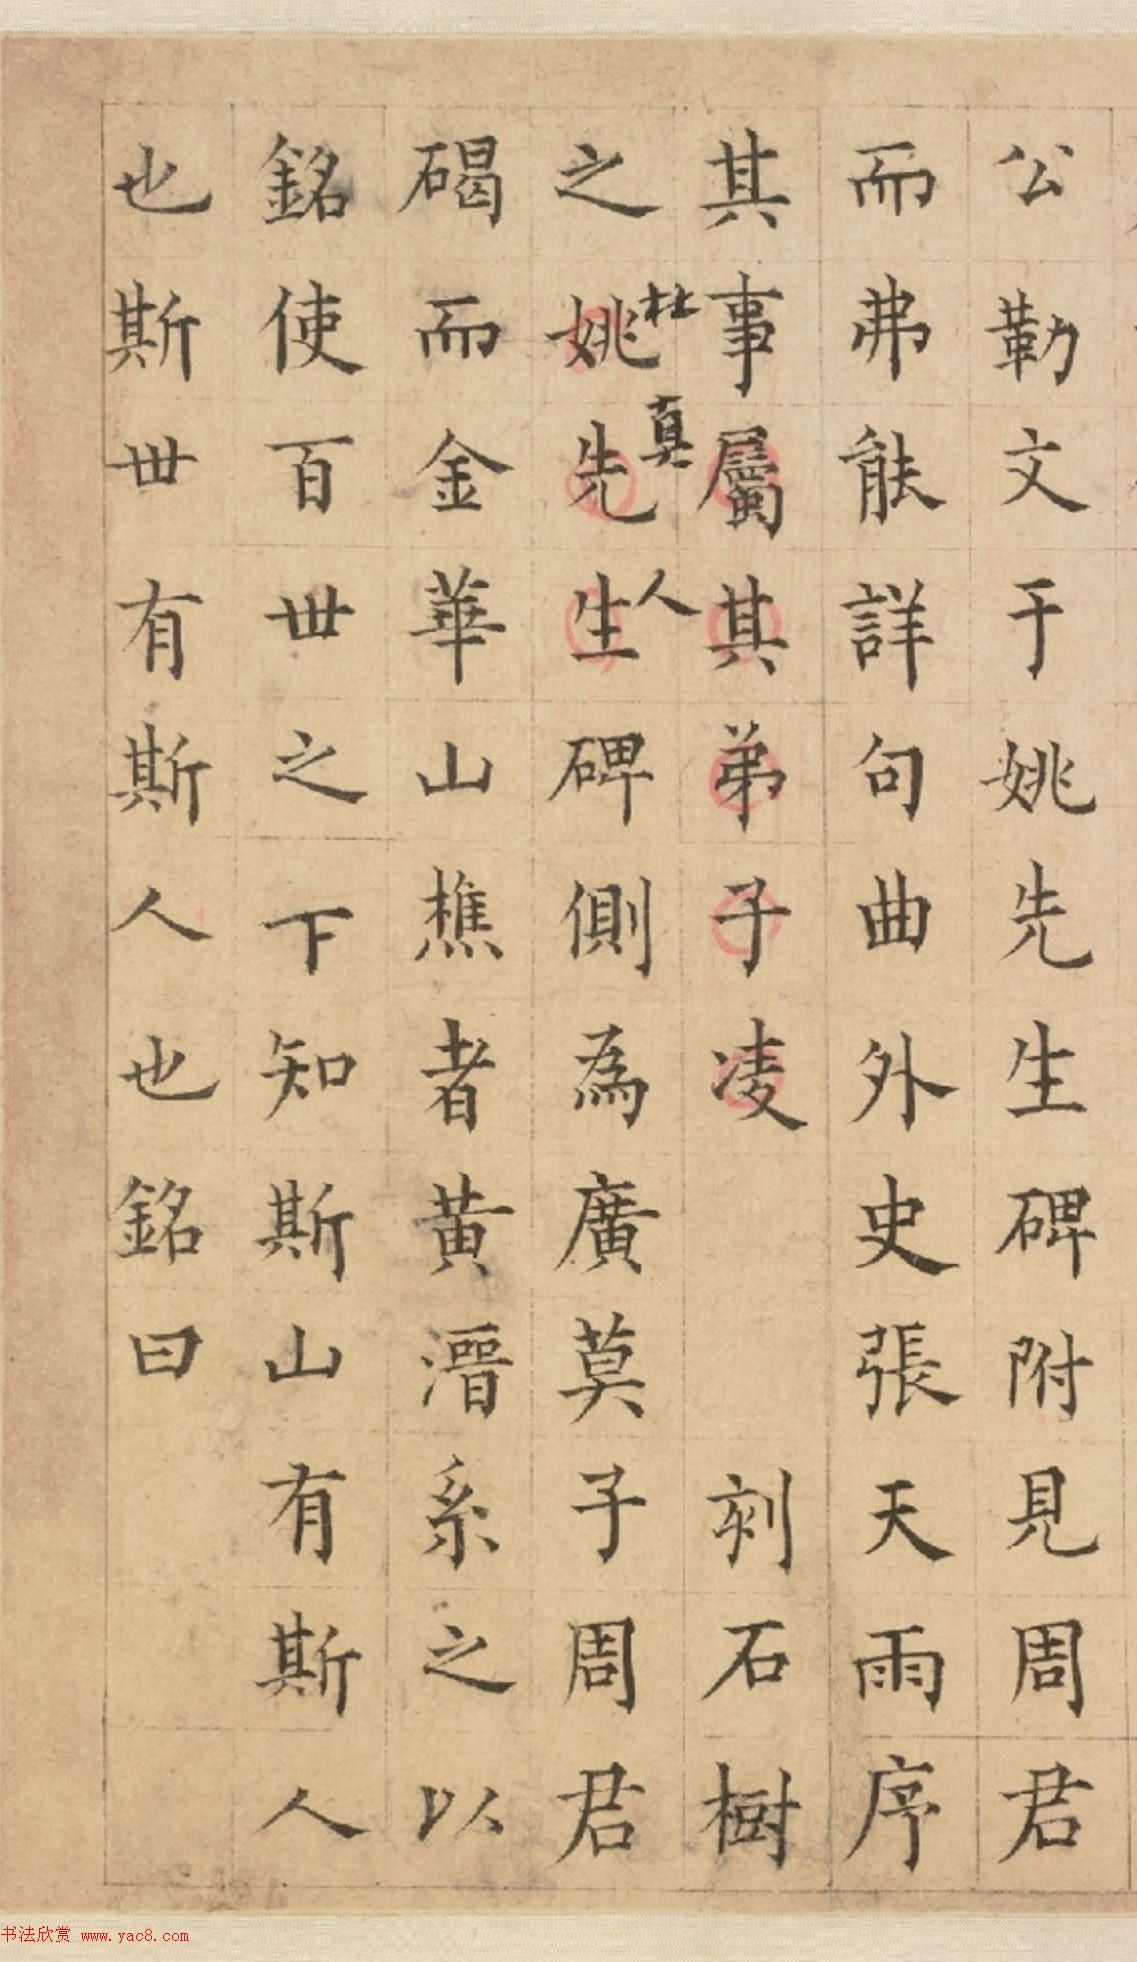 公勒文于姚先生碑附見周君
而弗能詳句曲外史張天雨序
其事屬其弟子凌刻石樹
杜真人
之姚先生碑側為廣莫子周君
碣而金華山樵者黃溍系之以
銘使百世之下知斯山有斯人
也斯世有斯人也銘曰
书法欣赏 www.yac8.com